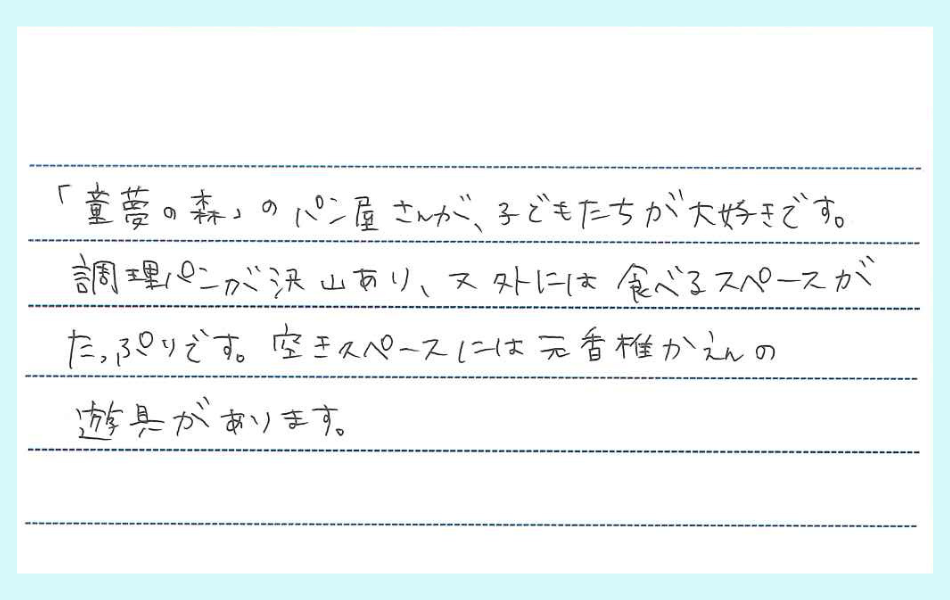 「童夢の森」のパン屋さんが、子どもたちが大好きです。
調理パンが沢山あり、又外には食べるスペースが
たっぷりです。空きスペースには元香椎かえんの
遊具があります。